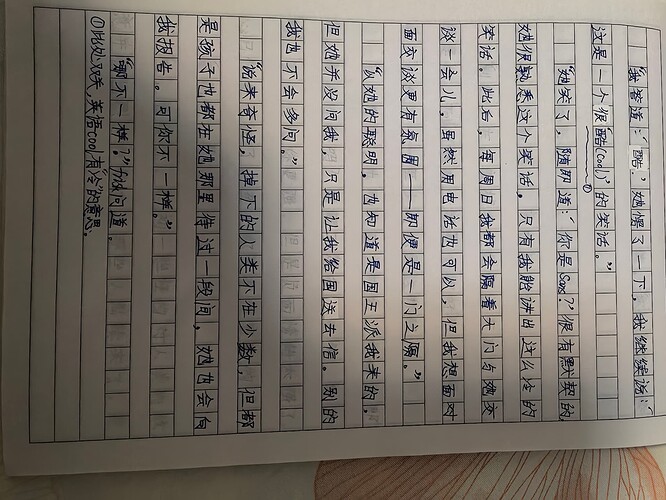 “我答道：‘酷。’她愣了一下，我继续说：‘
这是一个很‘酷(Cool)’的笑话。”
①
“她笑了，随即道：‘你是Sans？’很有默契的
她很熟悉这个笑话。只有我能讲出这么冷的
笑话。此后，每周日我都会隔着大门与她交
谈一会儿，虽然用电话也可以，但我想面对
面交谈更有氛围——即便是一门之隔。”
“以她的聪明，也知道是国王派我来的，
但她并没问我，只是让我给国送去信。别的
我也不会多问。”
“说来奇怪，掉下的人类不在少数，但都
是孩子也都在她那里待过一段间，她也会向
我报告。可你不一样。”
“哪不一样？”问道。
①此处双关，英语cool有“冷”的意思。